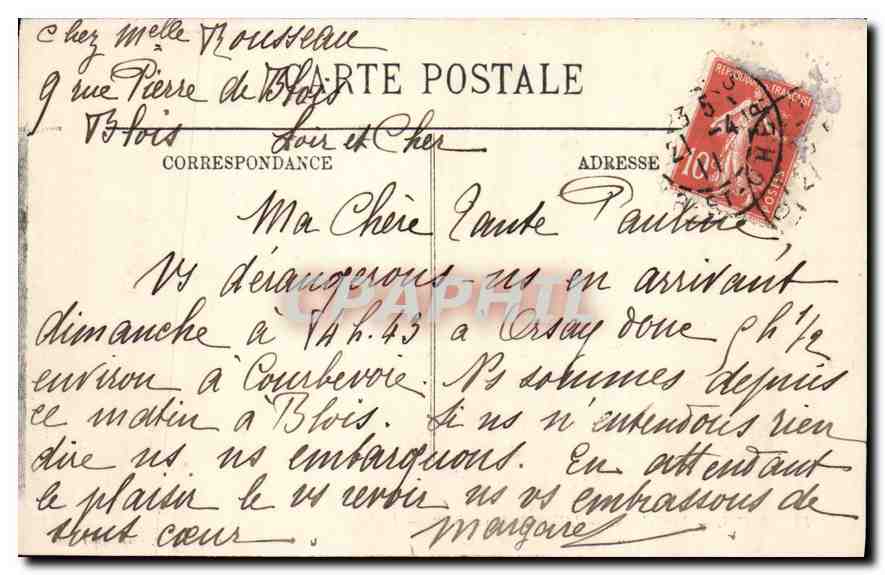 Chez Melle Rousseau
9 rue Pierre de Blois
Blois Loir et Cher
CARTE POSTALE
CORRESPONDANCE
ADRESSE
REPUBLIQUE FRANÇAISE
10
POSTES
Ma Chère Tante Pauline,
Vs dérangerons-ns en arrivant
dimanche à 14h.43 a Orsay donc 5h 1/2
environ à Courbevoie. Ns sommes depuis
ce matin à Blois. Si ns n'entendons rien
dire ns ns embarquons. En attendant
le plaisir de vs revoir ns vs embrassons de
tout cœur.
CPAPHIL